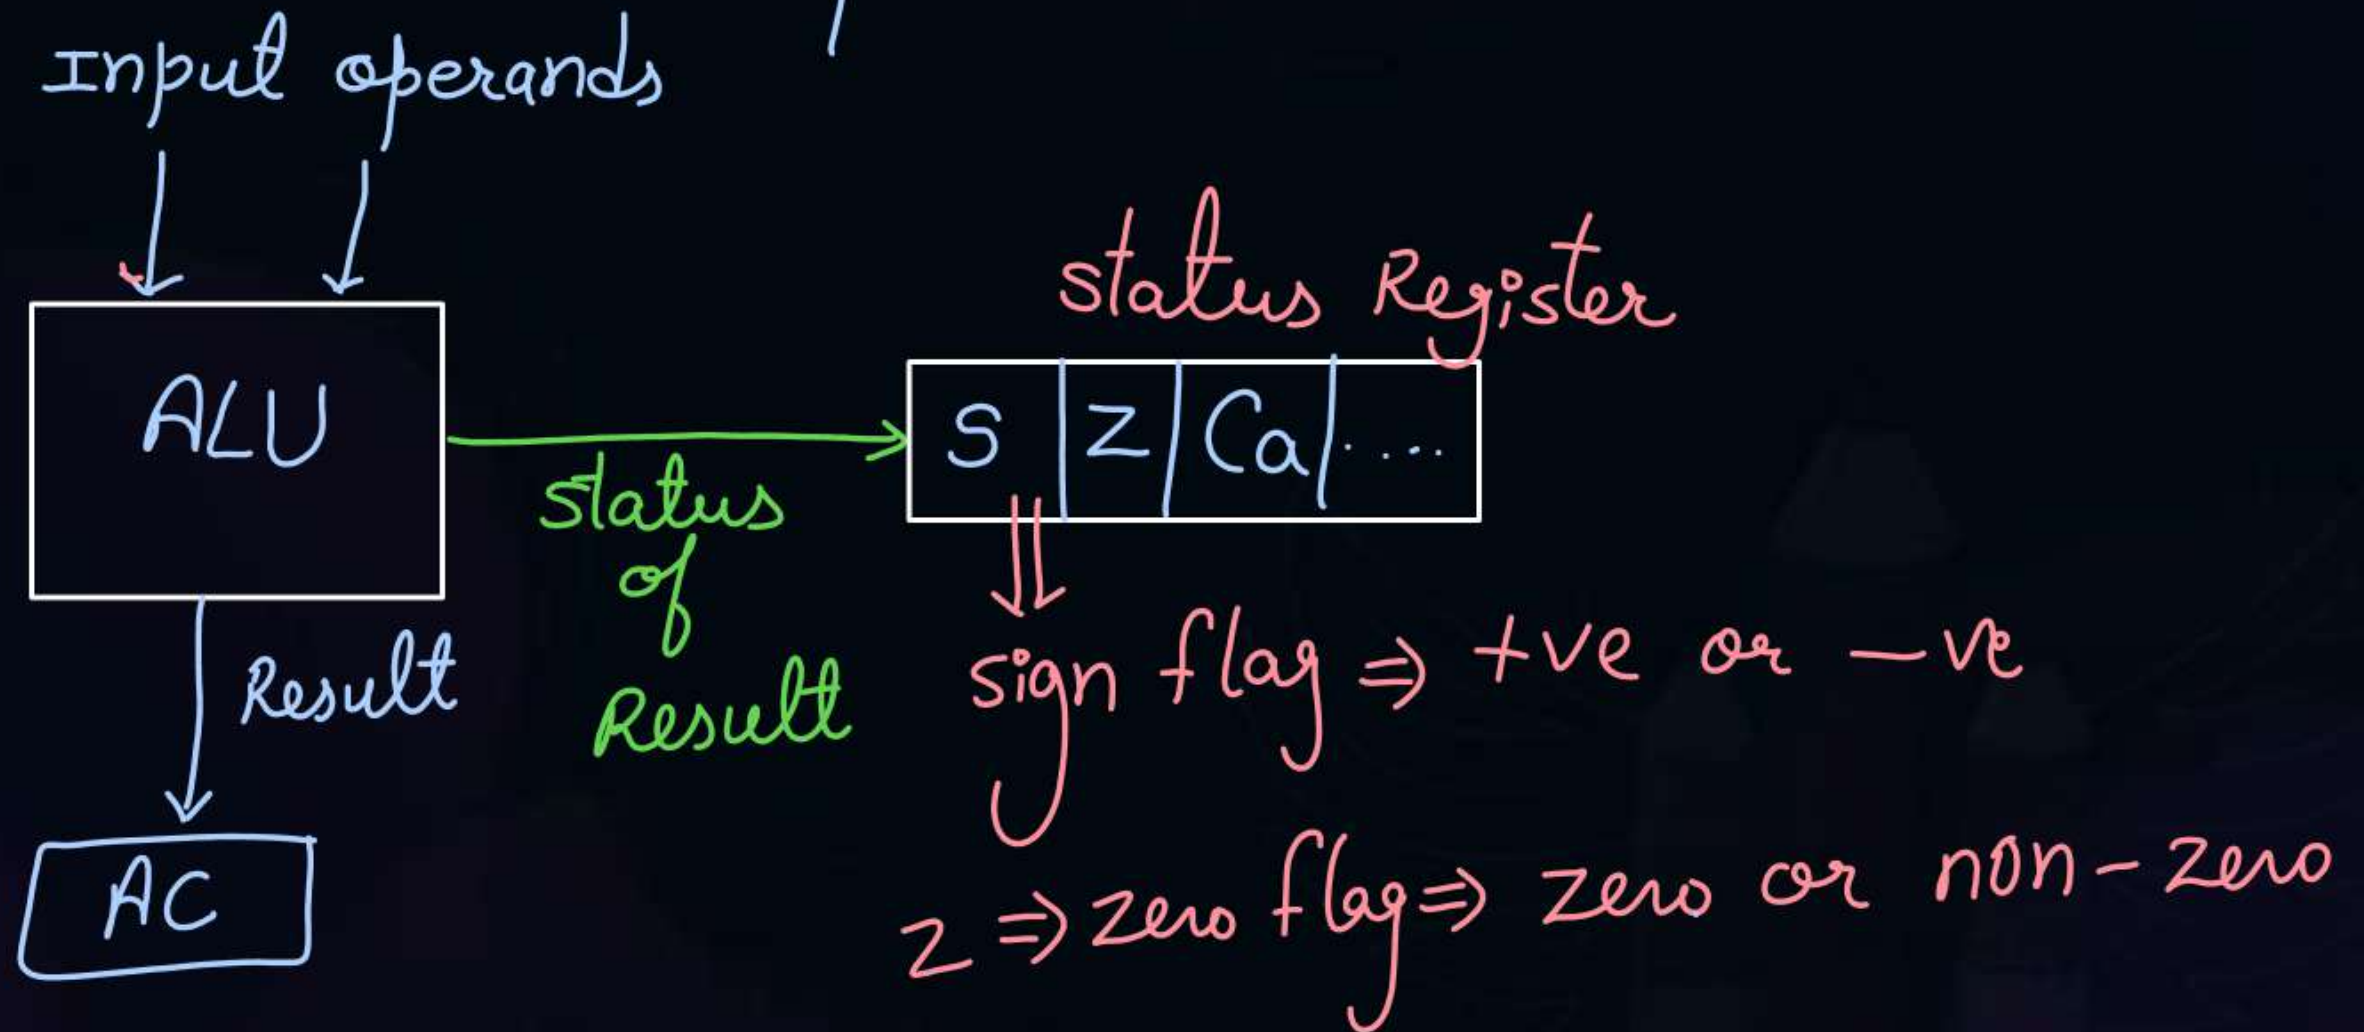 Input operands
status Register
ALU
S Z Ca ....
status
of
Result
Result
sign flag ⇒ +ve or -ve
AC
Z ⇒ zero flag ⇒ zero or non-zero